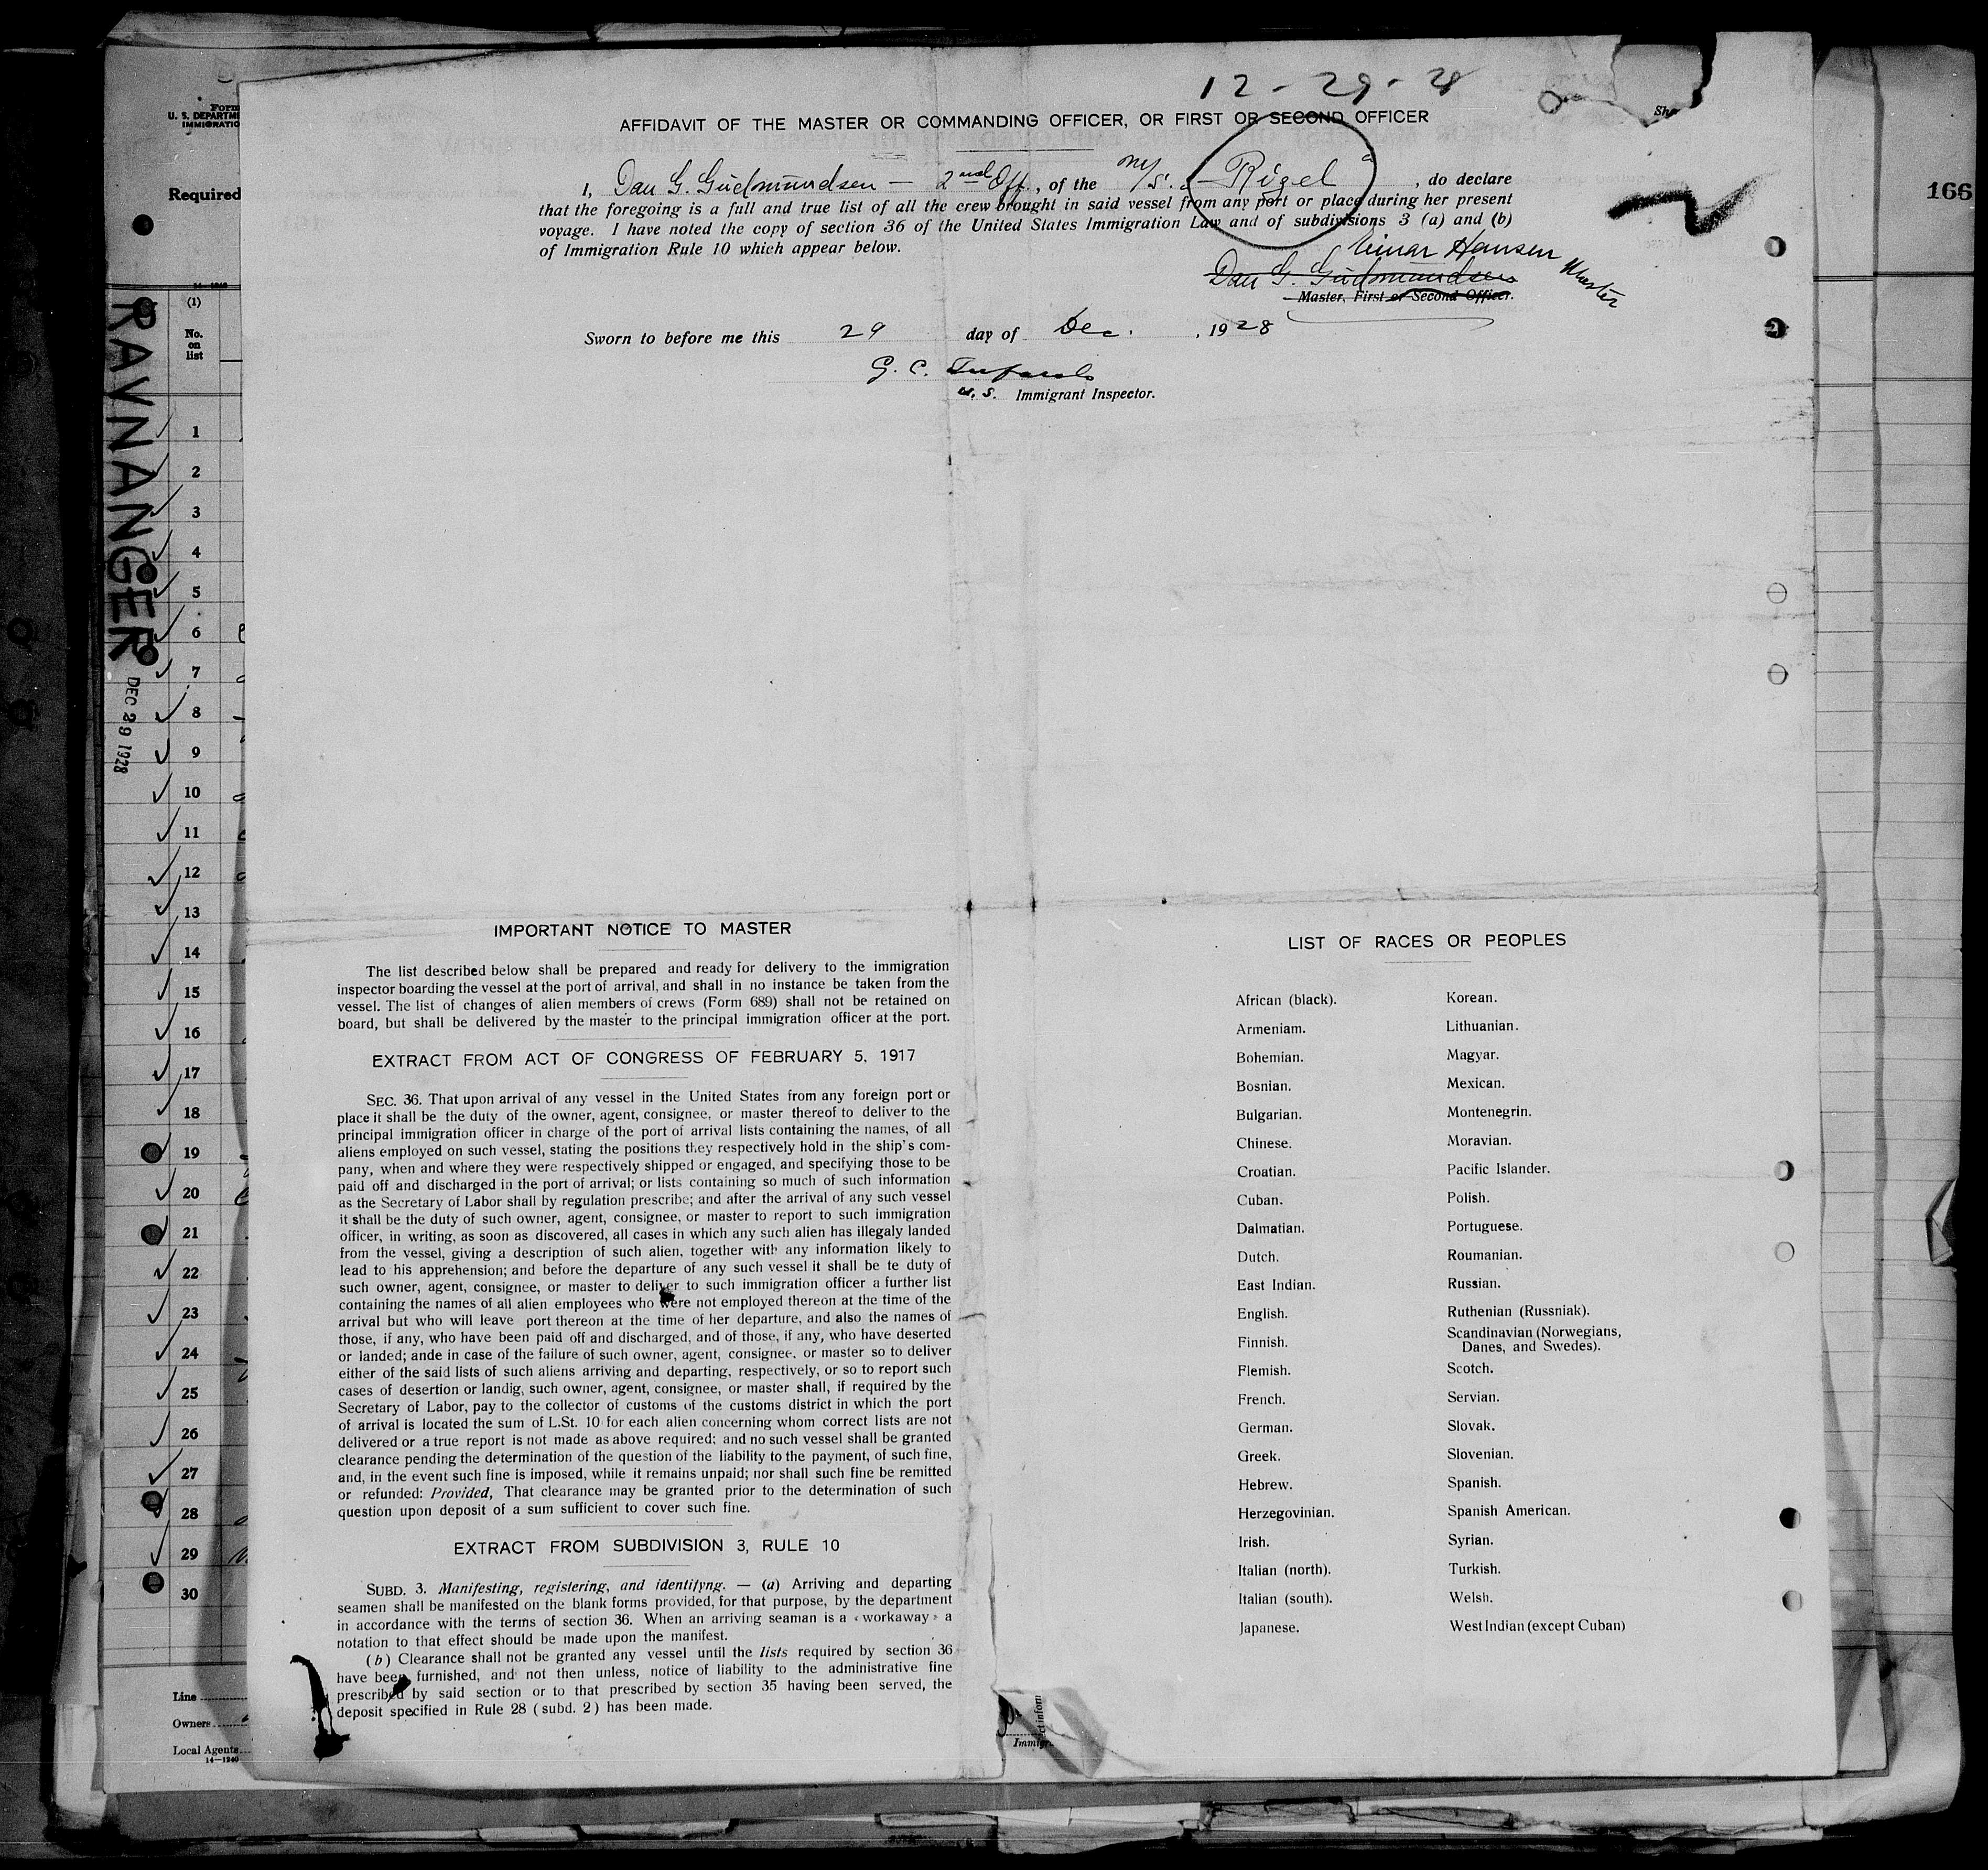 12-29-28
AFFIDAVIT OF THE MASTER OR COMMANDING OFFICER, OR FIRST OR SECOND OFFICER
I, Dan G. Gudmundsen — 2nd Off., of the M/S. "Rigel", do declare
that the foregoing is a full and true list of all the crew brought in said vessel from any port or place during her present
voyage. I have noted the copy of section 36 of the United States Immigration Law and of subdivisions 3 (a) and (b)
of Immigration Rule 10 which appear below.
Einar Hansen Master
Dan G. Gudmundsen
Master, First or Second Officer.
Sworn to before me this 29 day of Dec., 1928
G. C.
U. S. Immigrant Inspector.
IMPORTANT NOTICE TO MASTER
The list described below shall be prepared and ready for delivery to the immigration
inspector boarding the vessel at the port of arrival, and shall in no instance be taken from the
vessel. The list of changes of alien members of crews (Form 689) shall not be retained on
board, but shall be delivered by the master to the principal immigration officer at the port.
EXTRACT FROM ACT OF CONGRESS OF FEBRUARY 5, 1917
SEC. 36. That upon arrival of any vessel in the United States from any foreign port or
place it shall be the duty of the owner, agent, consignee, or master thereof to deliver to the
principal immigration officer in charge of the port of arrival lists containing the names, of all
aliens employed on such vessel, stating the positions they respectively hold in the ship's com-
pany, when and where they were respectively shipped or engaged, and specifying those to be
paid off and discharged in the port of arrival; or lists containing so much of such information
as the Secretary of Labor shall by regulation prescribe; and after the arrival of any such vessel
it shall be the duty of such owner, agent, consignee, or master to report to such immigration
officer, in writing, as soon as discovered, all cases in which any such alien has illegaly landed
from the vessel, giving a description of such alien, together with any information likely to
lead to his apprehension; and before the departure of any such vessel it shall be te duty of
such owner, agent, consignee, or master to deliver to such immigration officer a further list
containing the names of all alien employees who were not employed thereon at the time of the
arrival but who will leave port thereon at the time of her departure, and also the names of
those, if any, who have been paid off and discharged, and of those, if any, who have deserted
or landed; ande in case of the failure of such owner, agent, consignee, or master so to deliver
either of the said lists of such aliens arriving and departing, respectively, or so to report such
cases of desertion or landig, such owner, agent, consignee, or master shall, if required by the
Secretary of Labor, pay to the collector of customs of the customs district in which the port
of arrival is located the sum of L.St. 10 for each alien concerning whom correct lists are not
delivered or a true report is not made as above required; and no such vessel shall be granted
clearance pending the determination of the question of the liability to the payment, of such fine,
and, in the event such fine is imposed, while it remains unpaid; nor shall such fine be remitted
or refunded: Provided, That clearance may be granted prior to the determination of such
question upon deposit of a sum sufficient to cover such fine.
EXTRACT FROM SUBDIVISION 3, RULE 10
SUBD. 3. Manifesting, registering, and identifyng. — (a) Arriving and departing
seamen shall be manifested on the blank forms provided, for that purpose, by the department
in accordance with the terms of section 36. When an arriving seaman is a «workaway» a
notation to that effect should be made upon the manifest.
(b) Clearance shall not be granted any vessel until the lists required by section 36
have been furnished, and not then unless, notice of liability to the administrative fine
prescribed by said section or to that prescribed by section 35 having been served, the
deposit specified in Rule 28 (subd. 2) has been made.
LIST OF RACES OR PEOPLES
African (black). Korean.
Armeniam. Lithuanian.
Bohemian. Magyar.
Bosnian. Mexican.
Bulgarian. Montenegrin.
Chinese. Moravian.
Croatian. Pacific Islander.
Cuban. Polish.
Dalmatian. Portuguese.
Dutch. Roumanian.
East Indian. Russian.
English. Ruthenian (Russniak).
Finnish. Scandinavian (Norwegians,
Danes, and Swedes).
Flemish. Scotch.
French. Servian.
German. Slovak.
Greek. Slovenian.
Hebrew. Spanish.
Herzegovinian. Spanish American.
Irish. Syrian.
Italian (north). Turkish.
Italian (south). Welsh.
Japanese. West Indian (except Cuban)
Form
U. S. DEPARTME
IMMIGRATIO
Required
14-1240
(1)
No.
on
list
1
2
3
4
5
6
7
8
9
10
11
12
13
14
15
16
17
18
19
20
21
22
23
24
25
26
27
28
29
30
Line
Owners
Local Agents
14-1240
RAVNANGER
DEC 29 1928
She
166
ct inform
Immigr